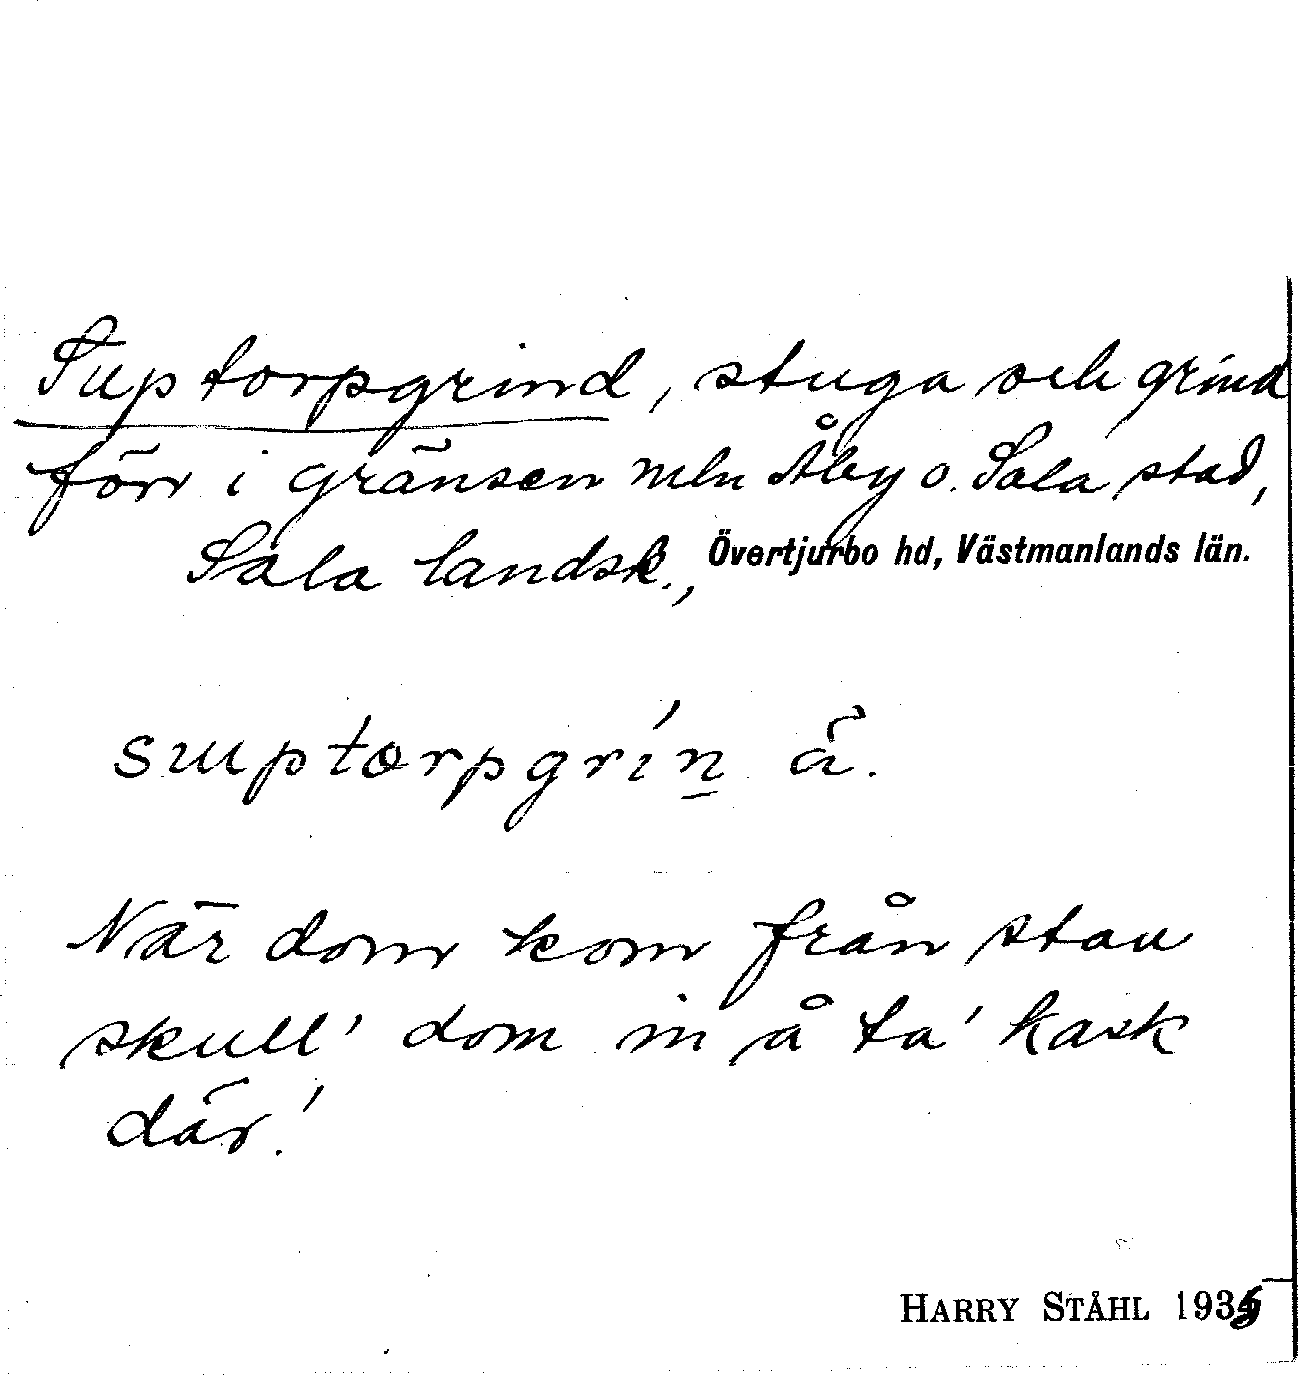 Suptorpgrind, stuga och grind
förr i gränsen mln Åby o. Sala stad,
Sala landsk., Övertjurbo hd, Västmanlands län.
suptorpgrín ä.
När dom kom från stan
skull' dom in å ta' kask
där!
HARRY STÅHL 1935